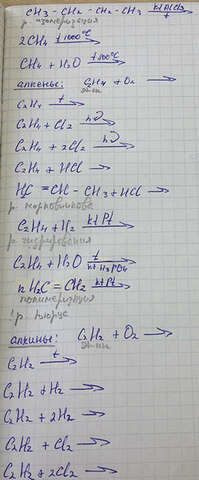 CH3 - CH2 - CH2 - CH3 kt AlCl3, t →
р. изомеризация
2CH4 t 1000°C →
CH4 + H2O t 800°C →
алкены: C2H4 + O2 →
этен
C2H4 t →
C2H4 + Cl2 hν →
C2H4 + 2Cl2 hν →
C2H4 + HCl →
H2C = CH - CH3 + HCl →
р. марковникова
C2H4 + H2 kt Pt →
р. гидрирования
C2H4 + H2O t kt H3PO4 →
n H2C = CH2 kt Pt →
полимеризация
!р. Вюрца
алкины: C2H2 + O2 →
этин
C2H2 t →
C2H2 + H2 →
C2H2 + 2H2 →
C2H2 + Cl2 →
C2H2 + 2Cl2 →